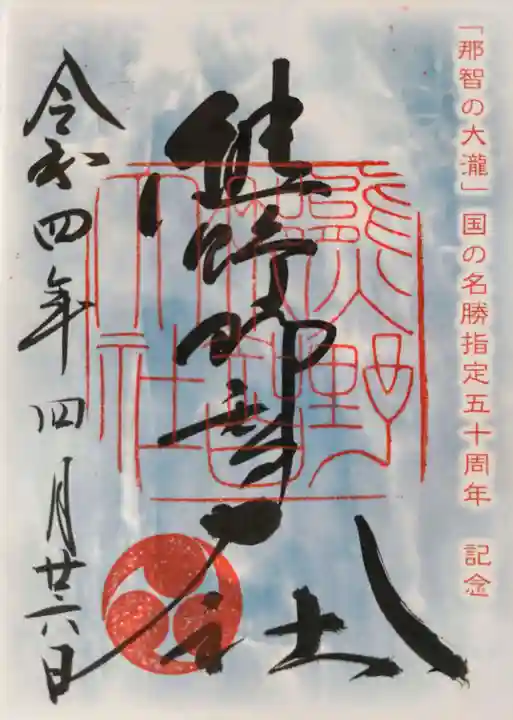 「那智の大瀧」国の名勝指定五十周年 記念
熊野那智大社
熊野
那智
大社
令和四年四月廿六日